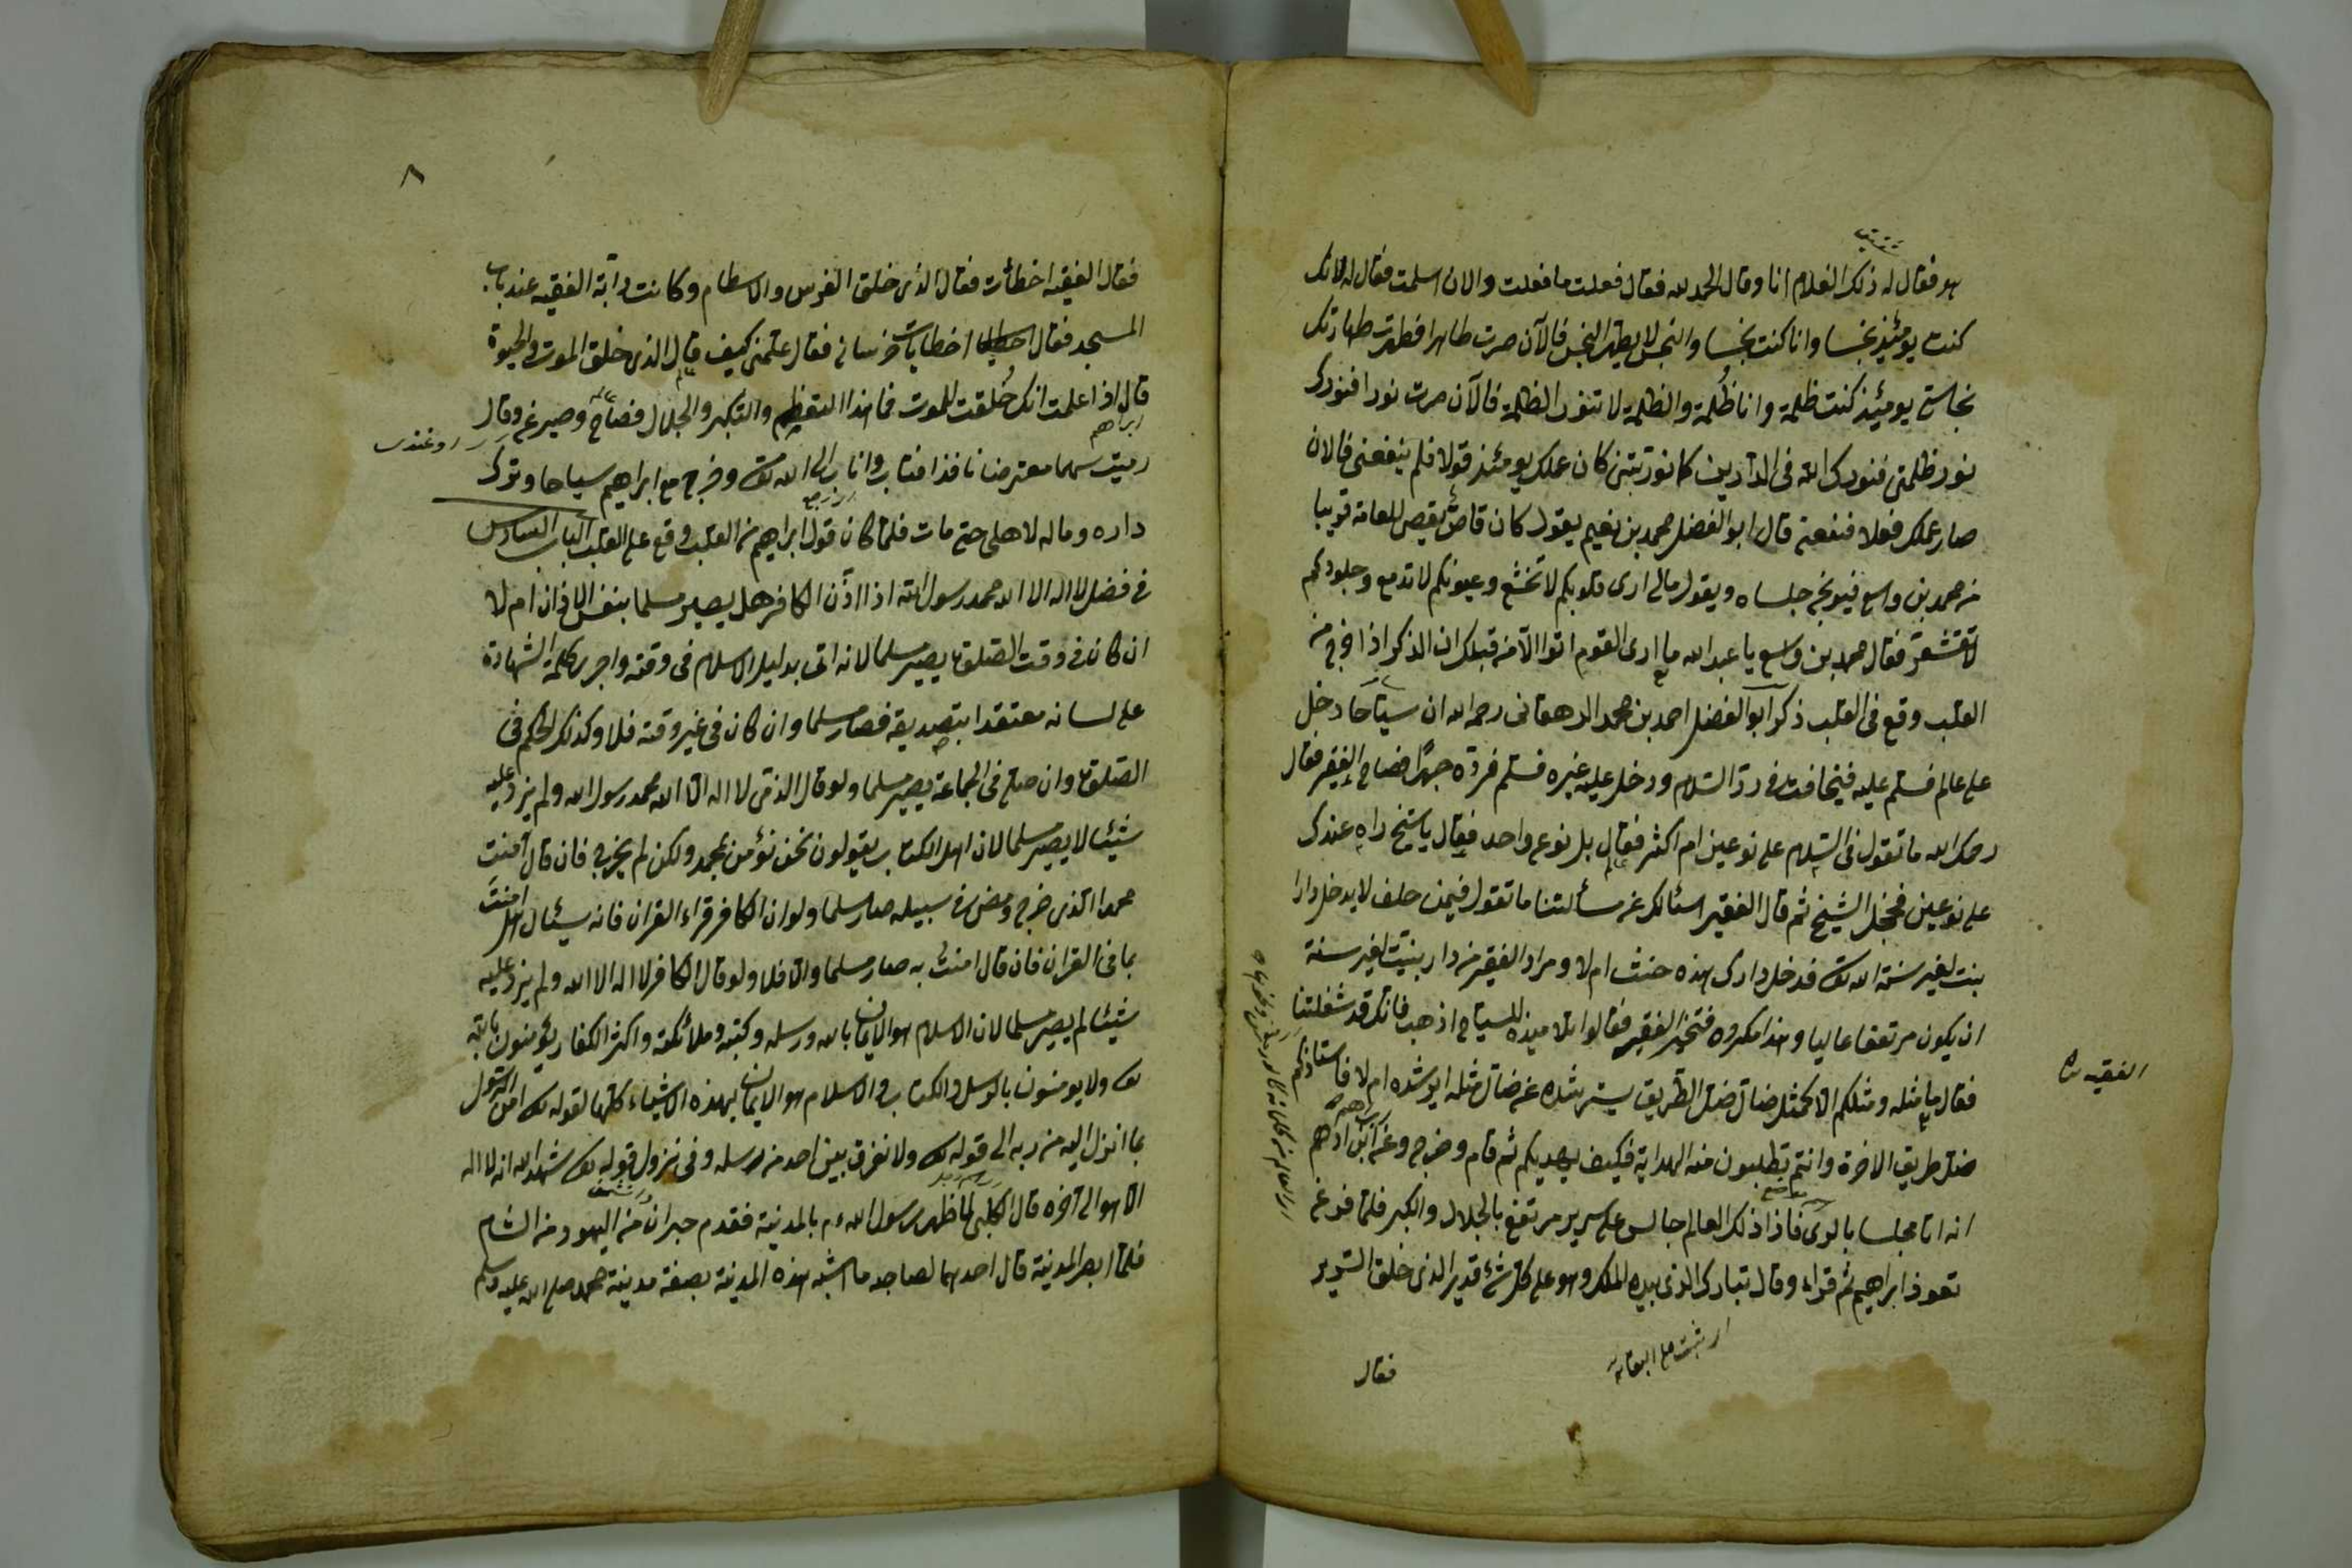 هو فقال له ذلك الغلام انا وقال الحمد لله فقال فعلت ما فعلت والان اسلمت فقال له لانك
كنت يومئذ نجسا وانا كنت نجسا والنجس لا يطهر النجس فالآن صرت طاهرا فطهرت طهارتك
نجاستي يومئذ كنت ظلمة وانا ظلمة والظلمة لا تنور الظلمة فالآن صرت نورا فنورك
نور ظلمتي فنورك الله في الدارين كما نورتني كان عملك يومئذ قولا فلم ينفعني فالان
صار عملك فعلا فنفعني قال ابو الفضل محمد بن نعيم يقول كان قاص يقص للعامة قريبا
من محمد بن واسع فيوبخ جلساه ويقول مالي ارى قلوبكم لا تخشع وعيونكم لا تدمع وجلودكم
لا تقشعر فقال محمد بن واسع يا عبد الله ما ارى القوم اتوا الا من قبلك ان الذكر اذا خرج من
القلب وقع في القلب ذكر ابو الفضل احمد بن محمد الدهقاني رحمه الله ان سياحا دخل
على عالم فسلم عليه فيتخافت في رد السلام ودخل عليه غيره فسلم فرده جهرا فصاح الفقير فقال
رحمك الله ما تقول في السلام على نوعين ام اكثر فقال بل نوع واحد فقال يا شيخ راه عندك
على نوعين فخجل الشيخ ثم قال الفقير اسئالك عن مسألتنا ما تقول فيمن حلف لا يدخل دارا
بنت لغير سنة الله تعالى فدخل دارك هذه حنث ام لا ومراد الفقير من دار بنيت لغير سنة
ان يكون مرتفعا عاليا وهذا مكروه فتحير الفقير فقالوا تلاميذه للسياح اذهب فانك قد شغلتنا
فقال ما مثله ومثلكم الا كمثل ضال ضل الطريق يسترشده عن ضال مثله ايرشده ام لا فاستاذكم
ضل طريق الاخرة وانتم تطلبون منه الهداية فكيف يهديكم ثم قام وخرج وعن ابن ادهم
انه اتا مجلسا بالري فاذا ذلك العالم جالس على سرير مرتفع بالجلال والكبر فلما فرغ
تعوذ ابراهيم ثم قراء وقال تبارك الذي بيده الملك وهو على كل شئ قدير الذي خلق السرير
فقال
الفقيه
٨
فقال الفقيه اخطأت فقال الذي خلق الفرس والاسطام وكانت دابة الفقيه عند باب
المسجد فقال اخطات خرساني فقال علمني كيف قال الذي خلق الموت والحيوة
قال اذا علمت انك خلقت للموت فما هذا التعظيم والتكبر والجلال فصاح وقال
ابراهيم
رميت سهما معترضا نافذا فتاب واناب الى الله تعالى وخرج مع ابراهيم سياحا وترك
داره وماله لاهله حتى مات فلما كان قول ابراهيم من القلب وقع على القلب الباب السادس
في فضل لا اله الا الله محمد رسول الله اذا اذن الكافر هل يصير مسلما بنفس الاذان ام لا
ان كان في وقت الصلوة يصير مسلما لانه اتى بدليل الاسلام في وقته واجرى كلمة الشهادة
على لسانه معتقدا بتصديقه فصار مسلما وان كان في غير وقته فلا وكذلك الحكم في
الصلوة وان صلى في الجماعة يصير مسلما ولو قال الذمي لا اله الا الله محمد رسول الله ولم يزد عليه
شيئا لا يصير مسلما لان اهل الكتاب يقولون نحن نؤمن بمحمد ولكن لم يخرج فان قال آمنت
محمدا الذي خرج ومضى في سبيله صار مسلما ولو ان الكافر قراء القران فانه يسئال هل امنت
بما في القران فان قال امنت به صار مسلما والا فلا ولو قال الكافر لا اله الا الله ولم يزد عليه
شيئا لم يصير مسلما لان الاسلام هو الايمان بالله ورسله وكتبه وملائكته واكثر الكفار يؤمنون بالله
تعالى ولا يومنون بالرسل والكتاب والاسلام هو الايمان بهذه الاشياء كلها لقوله تعالى امن الرسول
بما انزل اليه من ربه الى قوله تعالى ولا نفرق بين احد من رسله وفي نزول قوله تعالى شهد الله انه لا اله
الا هو الى آخره قال الكلبي لما ظهر رسول الله عم بالمدينة فقدم حبران من اليهود من الشام
فلما ابصر المدينة قال احدهما لصاحبه ما اشبه هذه المدينة بصفة مدينة محمد صلى الله عليه وسلم